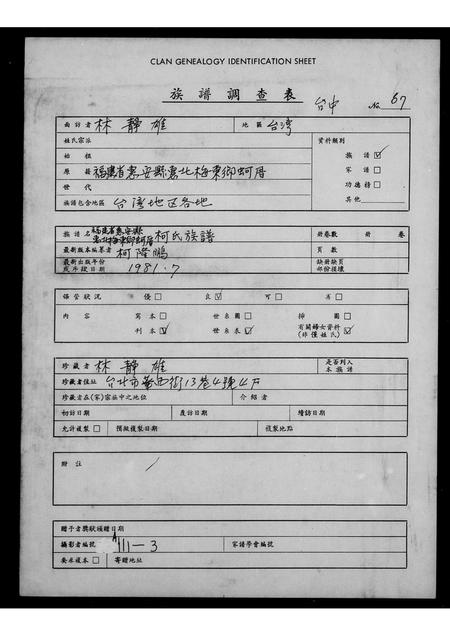 CLAN GENEALOGY IDENTIFICATION SHEET
族譜調查表 台中 No. 67
面訪者 林靜雄 地區 台灣
姓氏宗派 資料類別
始祖 族譜 ☑
原籍 福建省惠安縣惠北梅東鄉蚵厝 家譜 □
世代 功德榜 □
族譜包含地區 台灣地区各地 其他
族譜名 福建省惠安縣惠北梅東鄉蚵厝柯氏族譜 冊卷數 冊 卷
最新版本編纂者 柯隆鵬 頁數
最新出版年份 或序跋日期 1981.7 缺冊缺頁 部份損壞
保管狀況 優 □ 良 ☑ 可 □ 劣 □
內容 寫本 □ 世系圖 □ 掃圖 □
刊本 ☑ 世系表 ☑ 有關婦女資料 (非僅姓氏) ☑
珍藏者 林靜雄 是否列入本族譜
珍藏者住址 台北市 西街13巷4號4F
珍藏者在(家)宗族中之地位 介紹者
初訪日期 復訪日期 續訪日期
允許複製 □ 預擬複製日期 複製地點
附註
贈予者獎狀頒贈日期
攝影者編號 A111-3 家譜學會編號
要求複本 □ 寄贈地址